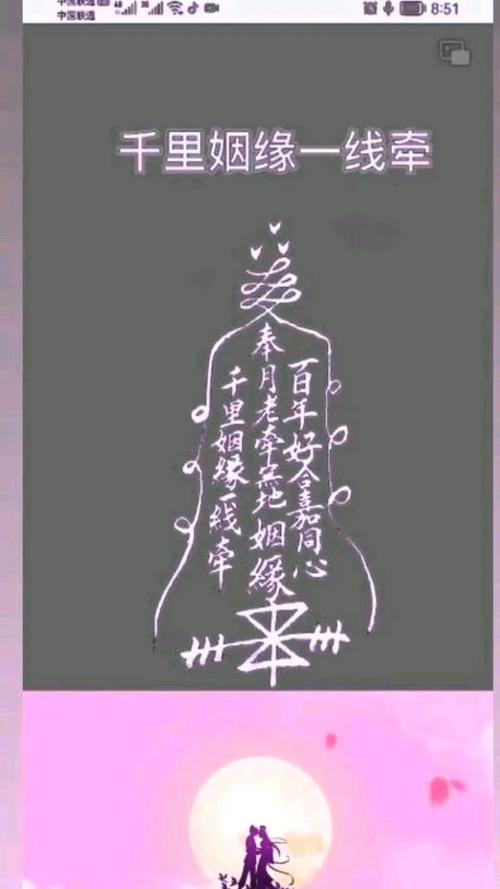 中国联通
中国联通
8:51
千里姻缘一线牵
百年好合嘉同心
奉月老牵無地姻緣
千里姻緣一線牵